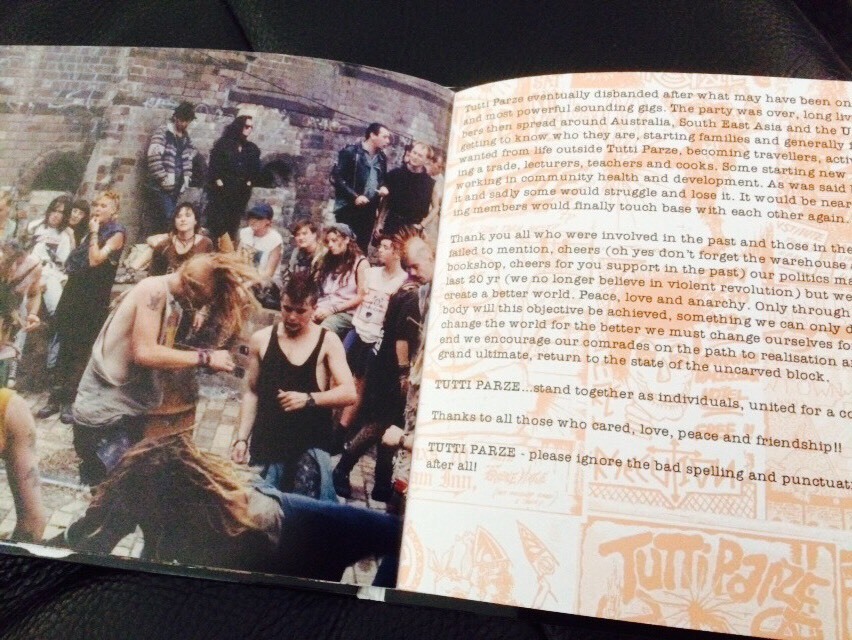 Tutti Parze eventually disbanded after what may have been on
and most powerful sounding gigs. The party was over, long liv
bers then spread around Australia, South East Asia and the U
getting to know who they are, starting families and generally
wanted from life outside Tutti Parze, becoming travellers, activ
ing a trade, lecturers, teachers and cooks. Some starting new
working in community health and development. As was said
it and sadly some would struggle and lose it. It would be near
ing members would finally touch base with each other again.
Thank you all who were involved in the past and those in the
failed to mention, cheers (oh yes don't forget the warehouse
bookshop, cheers for you support in the past) our politics ma
last 20 yr (we no longer believe in violent revolution) but we
create a better world. Peace, love and anarchy. Only through
body will this objective be achieved, something we can only d
change the world for the better we must change ourselves fo
end we encourage our comrades on the path to realisation a
grand ultimate, return to the state of the uncarved block.
TUTTI PARZE...stand together as individuals, united for a co
Thanks to all those who cared, love, peace and friendship!!
TUTTI PARZE - please ignore the bad spelling and punctuat
after all!
Inn.
TUTTI PARZE